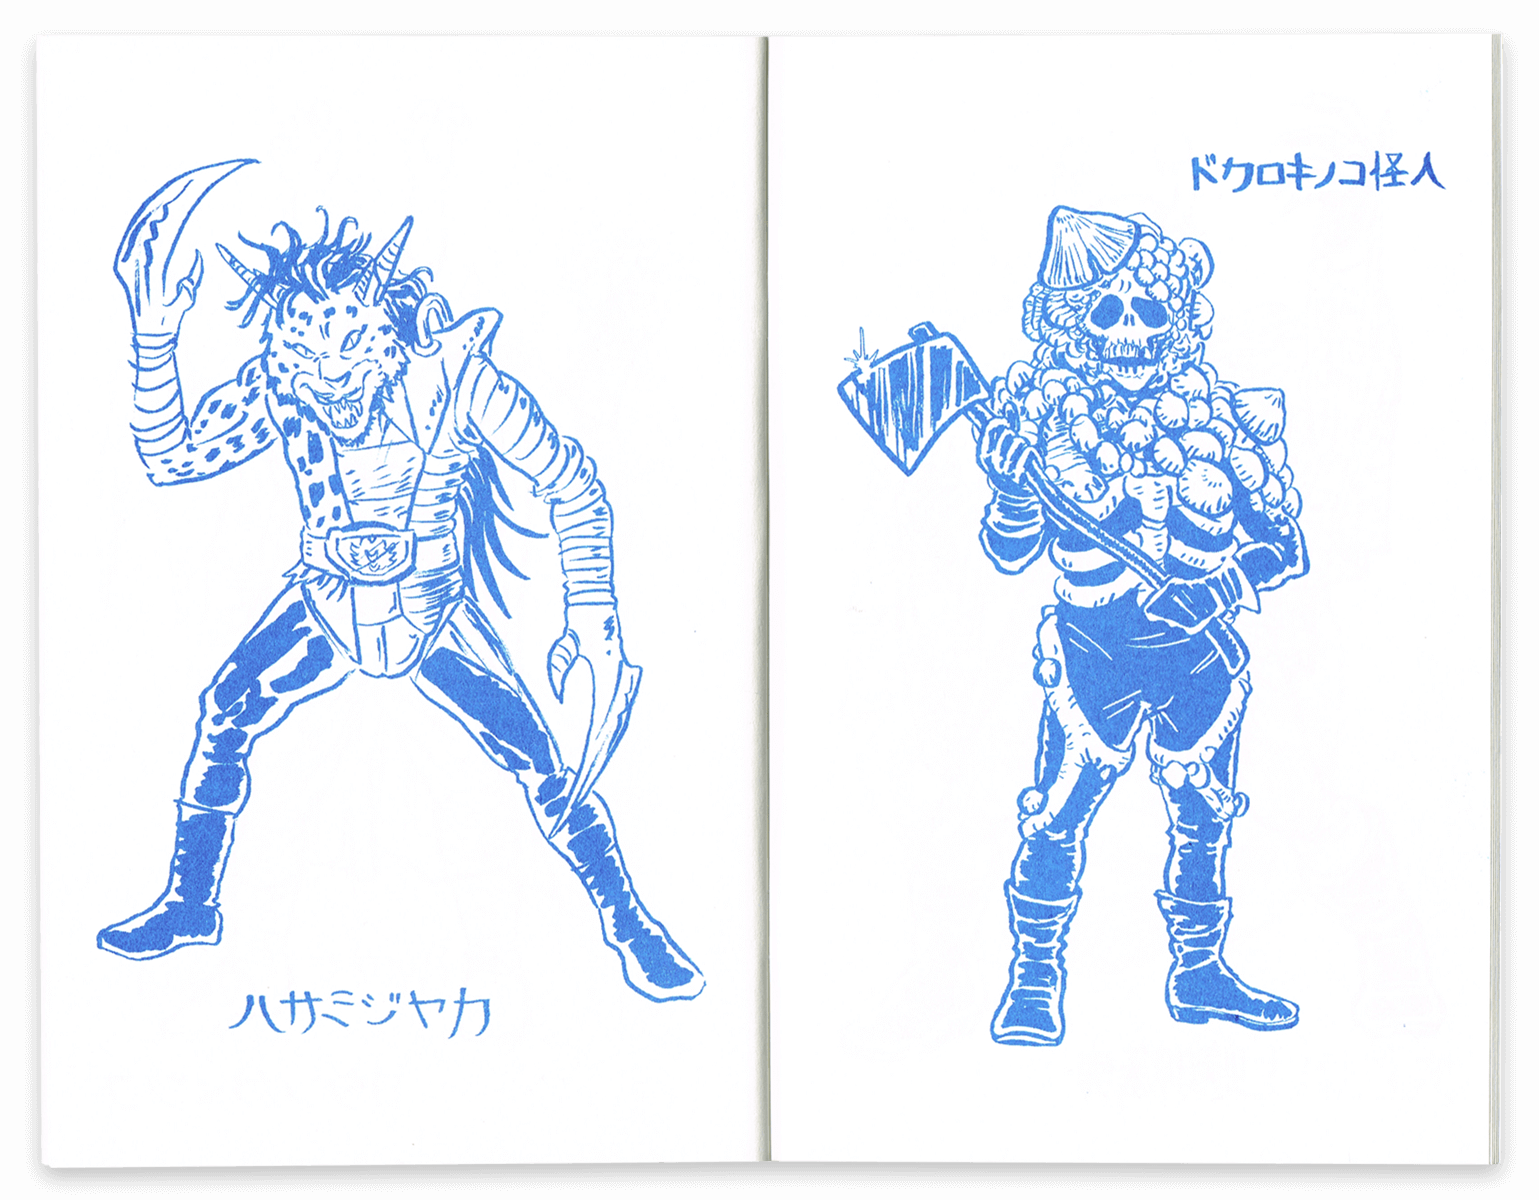 ハサミジャカ
ドクロキノコ怪人